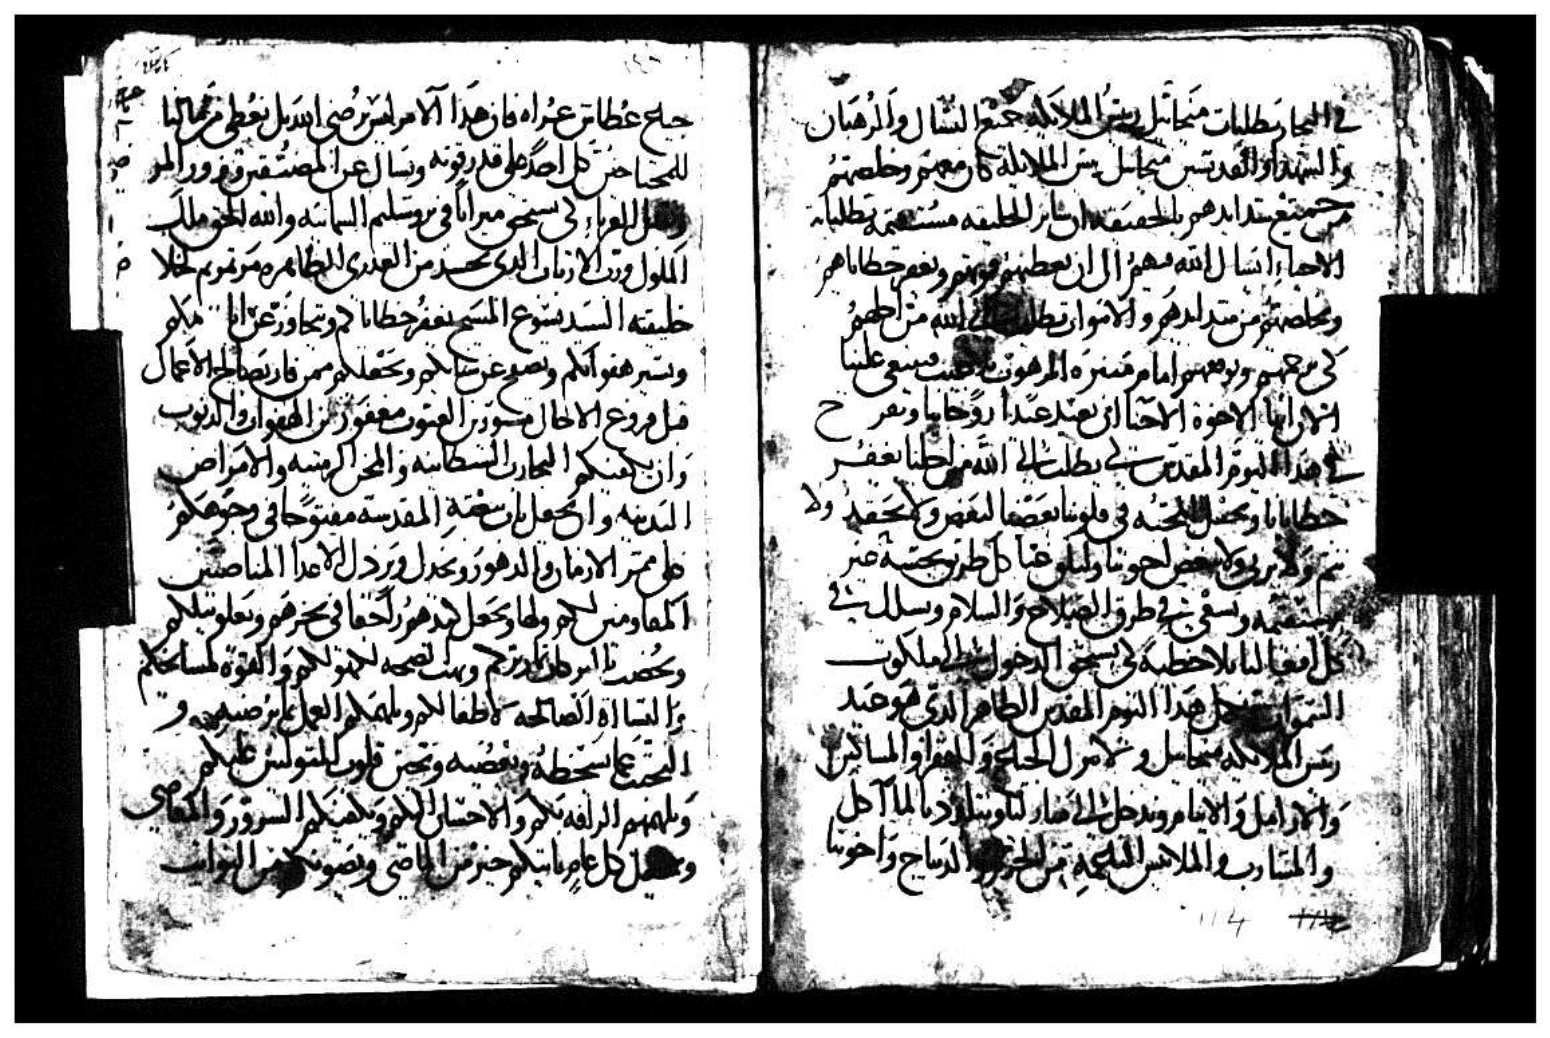 في البحار بطلبات ميخائيل رييس الملايكه جميع النساك والرهبان
والشهدا والقديسين ميخاييل رييس الملايكه كان معهم وخلصهم
من جميع شدايدهم بالحقيقه ان ساير الخليقه مستقيمه بطلبات
الاحياء اسال الله فيهم الى ان يعطيهم قوتهم ويغفر خطاياهم
ويخلصهم من شدايدهم والاموات يطلب الى الله من اجلهم
كي يرحمهم ويوقفهم امام منبره المرهوب فينبغي علينا
الان ايها الاخوه الاحبا ان نعيد عيدا روحانيا ونفرح
في هذا اليوم المقدس لكي يطلب الى الله من اجلنا يغفر
خطايانا ويجعل المحبه في قلوبنا بعضنا لبعض ولا نحقد ولا
ننم ولا نزني ولا نبغض اخوتنا ولنلق عنا كل طريق نجسة غير
مستقيمه ونسعى في طرق الصلاح والسلام ونسلك في
كل افعالنا بلا خطية لكي نستحق الدخول الى ملكوت
السموات هذا اليوم المقدس الطاهر الذي هو عيد
رييس الملايكه ميخاييل وللفقرا والمساكين
والارامل والايتام وندخل الى منازلنا المآكل
والمشارب والملابس من الحرير والديباج واخوتنا
جياع عطاش عراه فان هذا الامر ليس يرضي الله بل نعطي من
للمحتاجين كل احد على قدر قوته ونسال عن المضيقين ونزور المرضى
ونقبل الغرباء لكي نستحق ميراثا في يروشليم السمايه والله الحق ملك
الملوك ورب الارباب الذي تجسد من العذرى الطاهره مرتمريم لخلاص
خليقته السيد يسوع المسيح يغفر خطاياكم ويتجاوز عن اثامكم
ويستر هفواتكم ويصفح عن سياتكم ويجعلكم ممن فاز بصالح الاعمال
قبل فروغ الاجال مستورين العيوب مغفورين الهفوات والذنوب
وان يكفيكم التجارب الشيطانيه والمحن الزمنيه والامراض
البدنيه وان يجعل باب بيعته المقدسة مفتوحا في وجوهكم
على ممر الازمان والدهور ويخذل ويرذل الاعدا المناصبين
المقاومين لكم ولها ويجعل كيدهم راجعا في نحرهم
ويهب الصحه لكهولكم والقوة لمشايخكم
والنشااه الصالحه لاطفالكم ويلهمكم العمل بما يرضيه و
التجنب عما يسخطه ويغضبه ويحنن قلوب المتوليين عليكم
ويلهمهم الرافه بكم والاحسان اليكم ويكفيكم الشرور والمعاصي
ويجعل كل عام ياتيكم خير من الماضي ويصونكم من النوايب
114